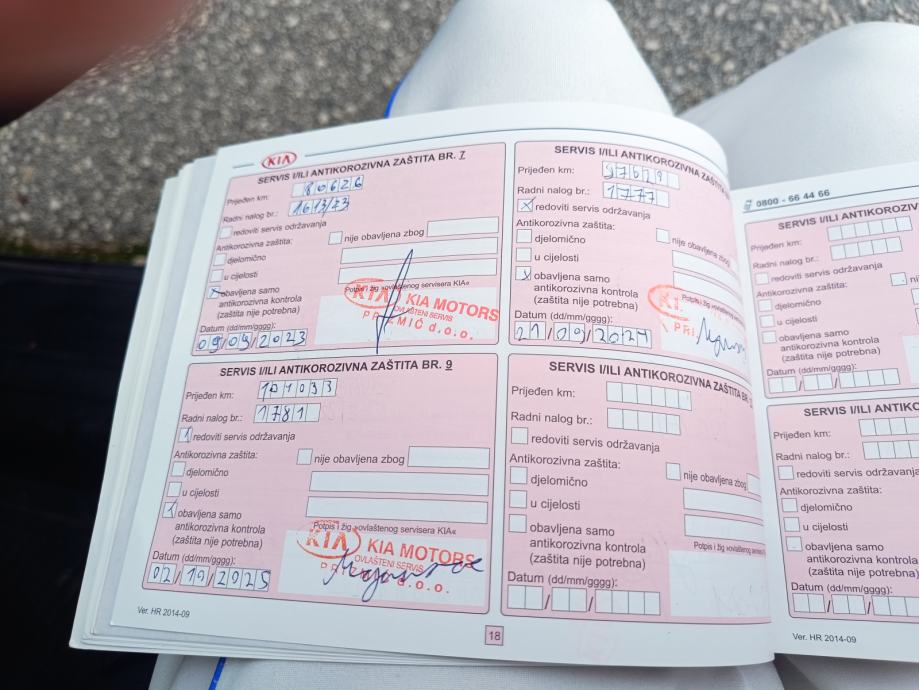 KIA
SERVIS I/ILI ANTIKOROZIVNA ZAŠTITA BR. 7
Prijeđen km: 80626
Radni nalog br.: 1613/23
redoviti servis održavanja
Antikorozivna zaštita:
nije obavljena zbog
djelomično
u cijelosti
obavljena samo
antikorozivna kontrola
(zaštita nije potrebna)
Potpis i žig »ovlaštenog servisera KIA«
KIA KIA MOTORS
OVLAŠTENI SERVIS
d.o.o.
Datum (dd/mm/gggg):
09/09/2023
SERVIS I/ILI ANTIKOROZIVNA ZAŠTITA
Prijeđen km: 97629
Radni nalog br.: 1777
redoviti servis održavanja
Antikorozivna zaštita:
nije obavljena
djelomično
u cijelosti
obavljena samo
antikorozivna kontrola
(zaštita nije potrebna)
Potpis i žig »ovlašten
Datum (dd/mm/gggg):
21/09/2024
SERVIS I/ILI ANTIKOROZIVNA ZAŠTITA BR. 9
Prijeđen km: 101033
Radni nalog br.: 1781
redoviti servis održavanja
Antikorozivna zaštita:
nije obavljena zbog
djelomično
u cijelosti
obavljena samo
antikorozivna kontrola
(zaštita nije potrebna)
Potpis i žig »ovlaštenog servisera KIA«
KIA KIA MOTORS
OVLAŠTENI SERVIS
d.o.o.
Datum (dd/mm/gggg):
02/10/2025
SERVIS I/ILI ANTIKOROZIVNA ZAŠTITA
Prijeđen km:
Radni nalog br.:
redoviti servis održavanja
Antikorozivna zaštita:
nije obavljena
djelomično
u cijelosti
obavljena samo
antikorozivna kontrola
(zaštita nije potrebna)
Potpis i žig »ovlaštenog
Datum (dd/mm/gggg):
Ver. HR 2014-09
18
0800 - 66 44 66
SERVIS I/ILI ANTIKOROZIV
Prijeđen km:
Radni nalog br.:
redoviti servis održavanja
Antikorozivna zaštita:
djelomično
u cijelosti
obavljena samo
antikorozivna kontrola
(zaštita nije potrebna)
Datum (dd/mm/gggg):
SERVIS I/ILI ANTIKO
Prijeđen km:
Radni nalog br.:
redoviti servis održavanja
Antikorozivna zaštita:
djelomično
u cijelosti
obavljena samo
antikorozivna kontrola
(zaštita nije potrebna)
Datum (dd/mm/gggg):
Ver. HR 2014-09